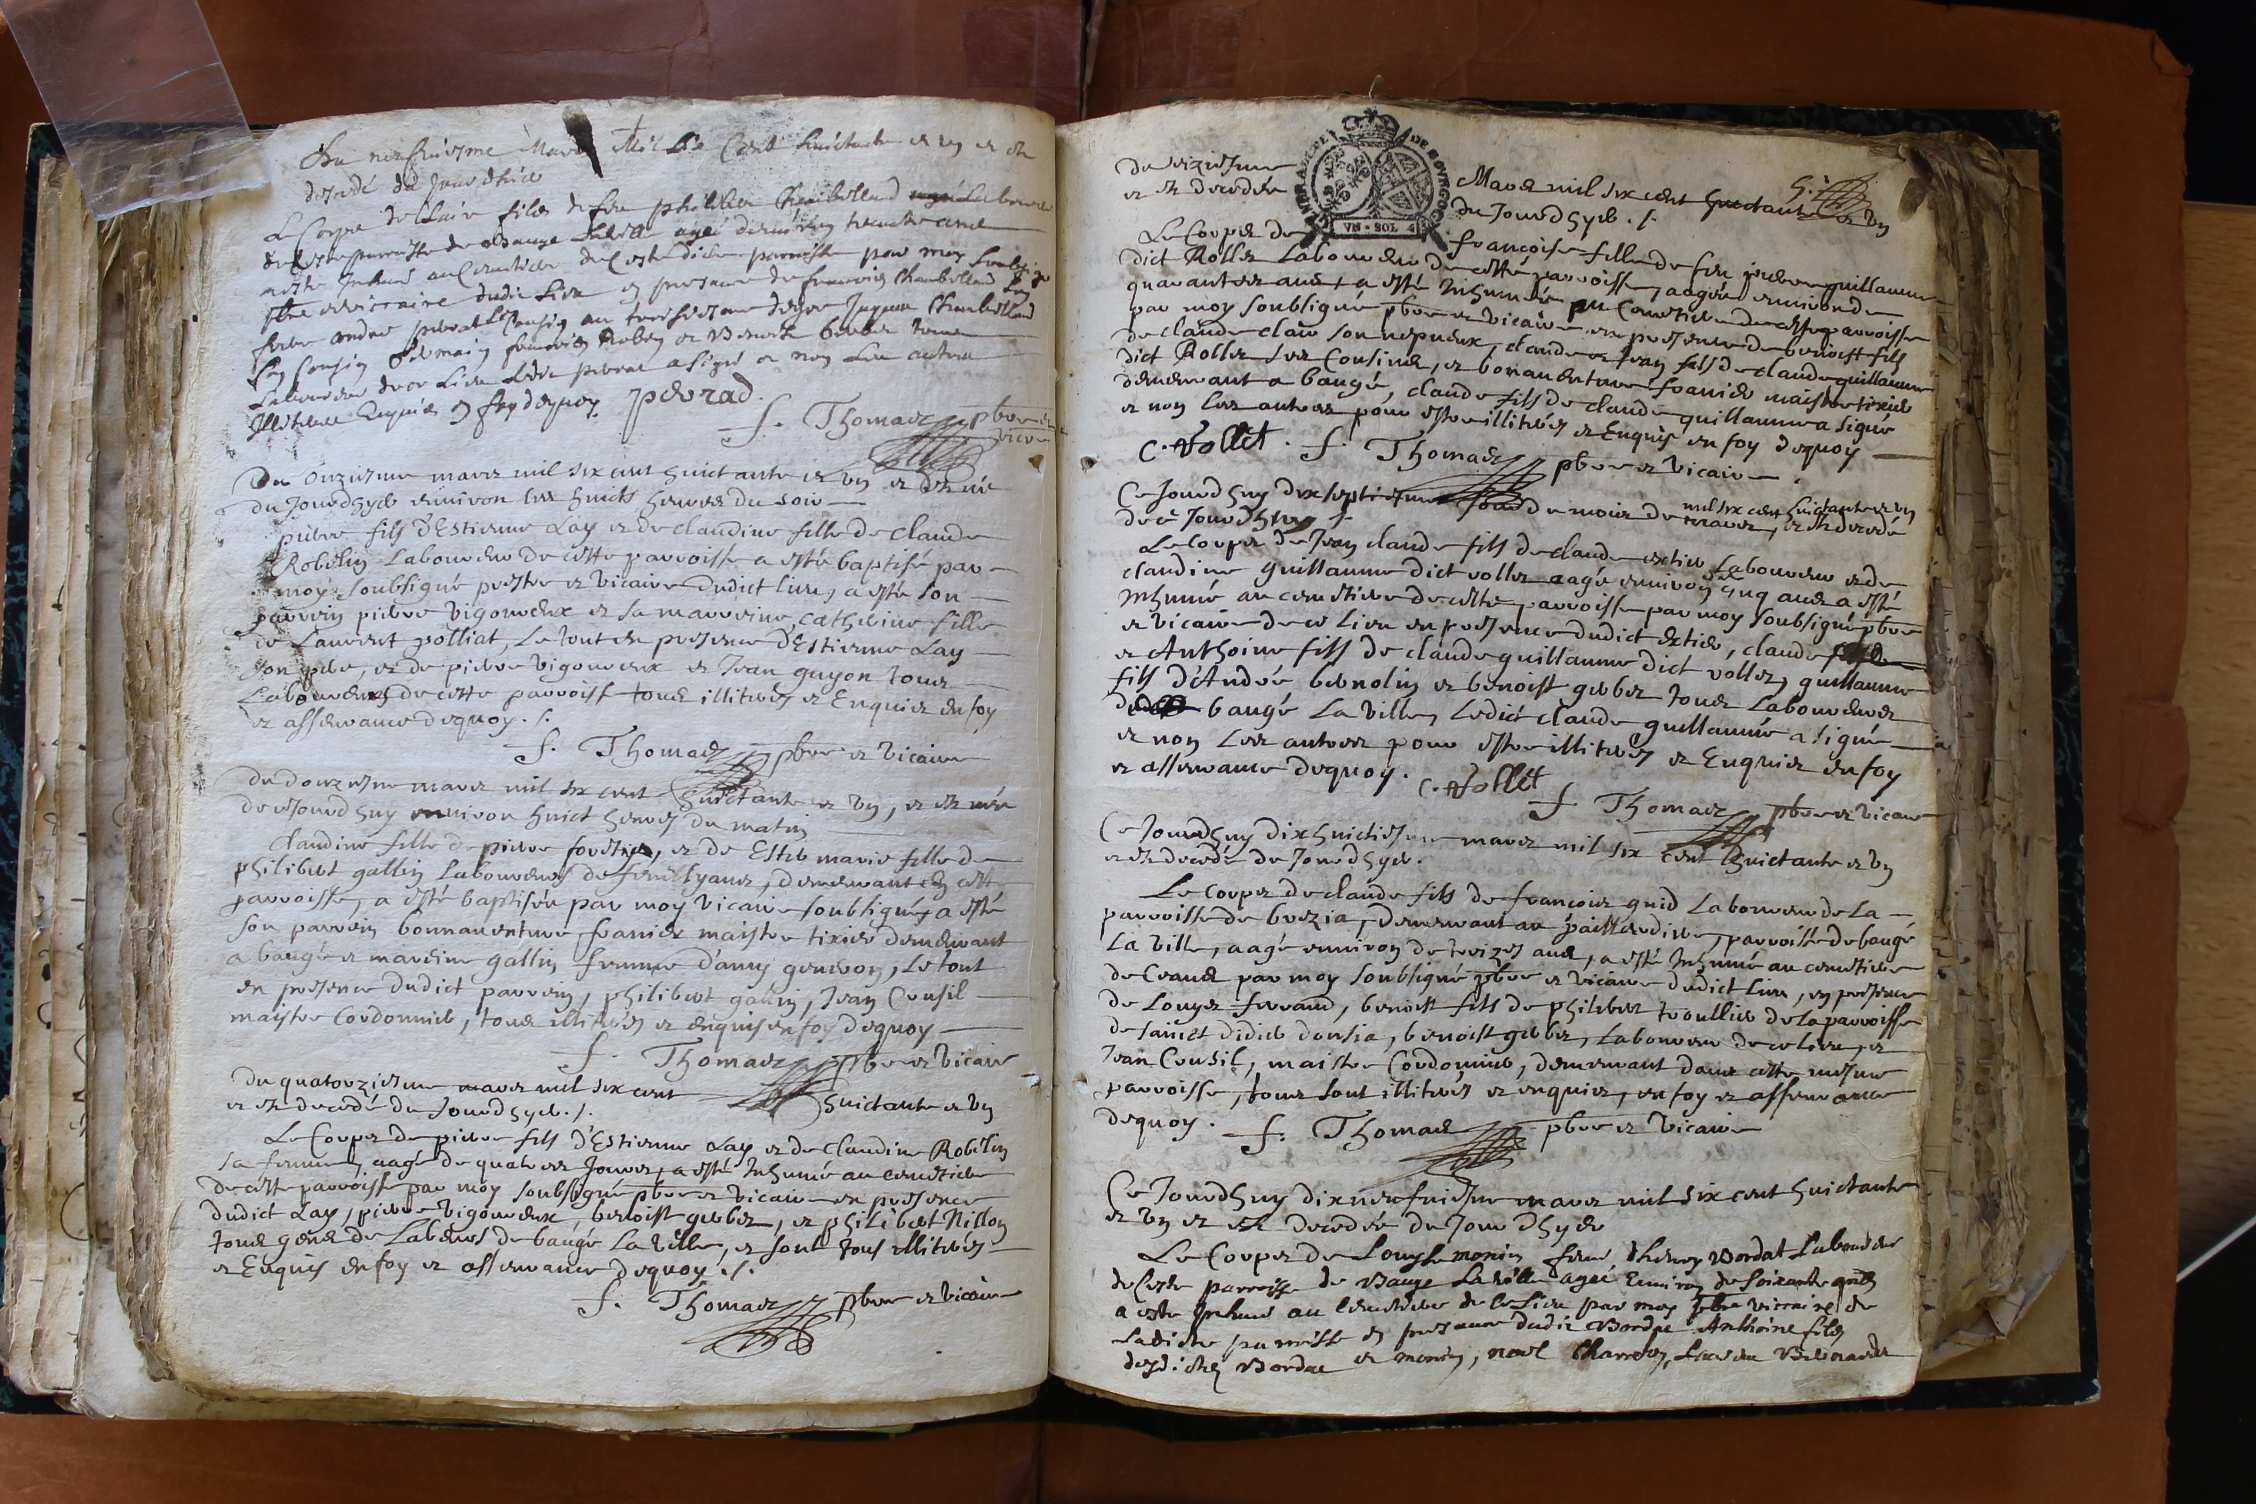 Du neufviesme Mars Mil Six Cent huictante et un et est
decedé du Jourdhier
Le Corps de Clair filz de feu philibert Chambolland Laboureur
de ceste parroisse de Bauge Laville agé denviron trente ans
a esté Inhumé au cemetiere de ceste dicte parroisse par moy soubsigné
pbre vicaire dudit Lieu en presence de francois Chambolland son
frere andre perrad cousin au troisiesme degre Chambolland
son cousin Germain francois Robin et Benoit tous
Laboureurs de ce Lieu Ledit perrad a signé et non Les autres
Illitteres Enquis en foy dequoy perrad.
f. Thomas pbre et
vicre
Du Onziesme mars mil six cent huictante et un et est né
du Jourdhyer environ les huict heures du soir
pierre fils d'Estienne Lay et de claudine fille de Claude
Robelin Laboureur de cette parroisse a esté baptisé par
moy soubsigné prestre et vicaire dudict lieu, a esté son
parrein pierre vigoureux et sa marreine, catherine fille
de Laurent polliat, Le tout en presence d'Estienne Lay
son pere, et de pierre vigoureux et Jean guyon tous
Laboureurs de cette parroisse tous illiterés et Enquis en foy
et asseurance dequoy ./.
f. Thomas pbre et vicaire
du douziesme mars mil six cent huictante et un, et est née
de cejourdhuy environ huict heures du matin
Claudine fille de pierre forestier, et de Ester marie fille de
philibert gallin Laboureurs de feuillyans, demeurant en cette
parroisse, a esté baptisée par moy vicaire soubsigné, a esté
son parrein bonnaventure franier maistre tixier demeurant
a baugé et marreine gallin femme d'amy genevoy, Le tout
en presence dudict parrein, philibert gallin, Jean Cusil
maistre Cordonnier, tous illiterés et enquis en foy dequoy
f. Thomas pbre et vicaire
du quatorziesme mars mil six cent huictante et un
et est decedé du Jourdhyer ./.
Le Corps de pierre fils d'Estienne Lay et de Claudine Robelin
sa femme, aagé de quatres Jours, a esté Inhumé au cemetiere
de cette parroisse par moy soubsigné pbre et vicaire en presence
dudict Lay, pierre vigoureux, benoist gerbez, et philibert Nillon
tous gens de Labeurs de baugé La ville, et sont tous illiterés
et Enquis en foy et asseurance dequoy ./.
f. Thomas pbre et vicaire
GENERALITE DE BOURGOG
VN · SOL 4
du seiziesme Mars mil six cent huictante et un
et est decedée du Jourdhyer ./.
Le Corps de francoise fille de feu pierre guillaume
dict Rollet Laboureur de cette parroisse, aagée environ de
quarantes ans, a esté Inhumée au Cemetiere de cette parroisse
par moy soubsigné pbre et vicaire en presence de benoist fils
de claude clair son nepveux, claude et Jean fils de claude guillaume
dict Rollet ses Cousins, et bonaventure franier maistre tixier
demeurant a baugé, claude fils de claude guillaume a signé
et non Les autres pour estre illiterés et Enquis en foy dequoy
C. Vollet. f. Thomas pbre et vicaire.
Ce Jourdhuy dix septiesme jour de mois de mars, mil six cent huictante et un et est decedé
de ce Jourdhuy ./.
Le corps de Jean claude fils de claude extier Laboureur et de
claudine guillaume dict vollet aagé environ de cinq ans a esté
Inhumé au cemetiere de cette parroisse par moy soubsigné pbre
et vicaire de ce Lieu en presence dudict extier, claude
et Anthoine fils de claude guillaume dict vollet, guillaume
fils d'André bernolin et benoist gerbez tous Laboureurs
baugé La Ville, Ledict claude guillaume a signé
et non Les autres pour estre illiterés et Enquis en foy
et asseurance dequoy. C. Vollet
f. Thomas pbre et vicaire
Ce Jourdhuy dixhuictiesme mars mil six cent huictante et un
et est decedé de Jourdhyer.
Le corps de claude fils de francois quid Laboureur de La
parroisse de brezia, demeurant au paillerdire, parroisse de baugé
La ville, aagé environ de treizes ans, a esté Inhumé au cemetiere
de Ceans par moy soubsigné pbre et vicaire dudict lieu, en presence
de Louys ferrand, benoist fils de philibert troullier de la parroisse
de sainct didier donsia, benoist gerbez, Laboureur de ce lieu, et
Jean Cousil, maistre Cordonnier, demeurant dans cette mesme
parroisse, tous sont illiterés et enquis, en foy et asseurance
dequoy. f. Thomas pbre et vicaire
Ce Jourdhuy dixneufviesme mars mil six cent huictante
et un et est decedée du Jourdhyer
Le Corps de Louyse monin feme Bordat Laboureur
de Ceste parroisse de Bauge La ville agéé Environ de soixante
a esté Inhumé au Cemetiere de ce Lieu par moy pbre viccaire de
Ladicte parroisse en presence dudit Bordat Anthoine filz
desdictes Bordat et monin, noel Charreton,